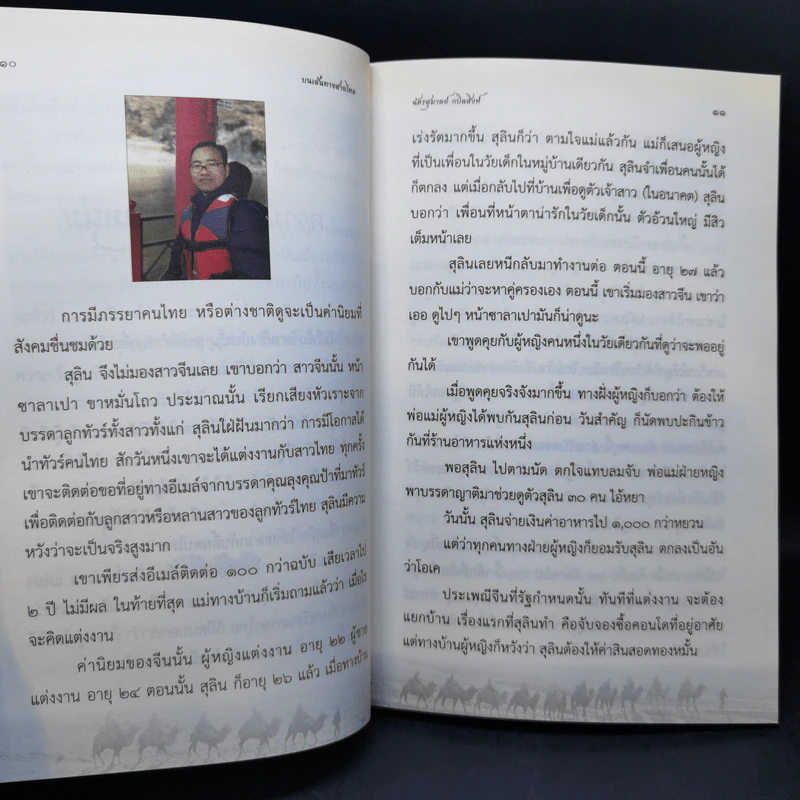 ๑๐
บนเส้นทางสายไหม
การมีภรรยาคนไทย หรือต่างชาติดูจะเป็นค่านิยมที่
สังคมชื่นชมด้วย
สุลิน จึงไม่มองสาวจีนเลย เขาบอกว่า สาวจีนนั้น หน้า
ซาลาเปา ขาหมั่นโถว ประมาณนั้น เรียกเสียงหัวเราะจาก
บรรดาลูกทัวร์ทั้งสาวทั้งแก่ สุลินใฝ่ฝันมากว่า การมีโอกาสได้
นำทัวร์คนไทย สักวันหนึ่งเขาจะได้แต่งงานกับสาวไทย ทุกครั้ง
เขาจะติดต่อขอที่อยู่ทางอีเมล์จากบรรดาคุณลุงคุณป้าที่มาทัวร์
เพื่อติดต่อกับลูกสาวหรือหลานสาวของลูกทัวร์ไทย สุลินมีความ
หวังว่าจะเป็นจริงสูงมาก
เขาเพียรส่งอีเมล์ติดต่อ ๑๐๐ กว่าฉบับ เสียเวลาไป
๒ ปี ไม่มีผล ในท้ายที่สุด แม่ทางบ้านก็เริ่มถามแล้วว่า เมื่อไร
จะคิดแต่งงาน
ค่านิยมของจีนนั้น ผู้หญิงแต่งงาน อายุ ๒๒ ผู้ชาย
แต่งงาน อายุ ๒๔ ตอนนั้น สุลิน ก็อายุ ๒๖ แล้ว เมื่อทางบ้าน
ฉัตรสุมาลย์ กบิลสิงห์
๑๑
เร่งรัดมากขึ้น สุลินก็ว่า ตามใจแม่แล้วกัน แม่ก็เสนอผู้หญิง
ที่เป็นเพื่อนในวัยเด็กในหมู่บ้านเดียวกัน สุลินจำเพื่อนคนนั้นได้
ก็ตกลง แต่เมื่อกลับไปที่บ้านเพื่อดูตัวเจ้าสาว (ในอนาคต) สุลิน
บอกว่า เพื่อนที่หน้าตาน่ารักในวัยเด็กนั้น ตัวอ้วนใหญ่ มีสิว
เต็มหน้าเลย
สุลินเลยหนีกลับมาทำงานต่อ ตอนนี้ อายุ ๒๗ แล้ว
บอกกับแม่ว่าจะหาคู่ครองเอง ตอนนี้ เขาเริ่มมองสาวจีน เขาว่า
เออ ดูไปๆ หน้าซาลาเปามันก็น่าดูนะ
เขาพูดคุยกับผู้หญิงคนหนึ่งในวัยเดียวกันที่ดูว่าจะพออยู่
กันได้
เมื่อพูดคุยจริงจังมากขึ้น ทางฝั่งผู้หญิงก็บอกว่า ต้องให้
พ่อแม่ผู้หญิงได้พบกันสุลินก่อน วันสำคัญ ก็นัดพบปะกินข้าว
กันที่ร้านอาหารแห่งหนึ่ง
พอสุลิน ไปตามนัด ตกใจแทบลมจับ พ่อแม่ฝ่ายหญิง
พาบรรดาญาติมาช่วยดูตัวสุลิน ๓๐ คน ไอ้หยา
วันนั้น สุลินจ่ายเงินค่าอาหารไป ๑,๐๐๐ กว่าหยวน
แต่ว่าทุกคนทางฝ่ายผู้หญิงก็ยอมรับสุลิน ตกลงเป็นอัน
ว่าโอเค
ประเพณีจีนที่รัฐกำหนดนั้น ทันทีที่แต่งงาน จะต้อง
แยกบ้าน เรื่องแรกที่สุลินทำ คือจับจองซื้อคอนโดที่อยู่อาศัย
แต่ทางบ้านผู้หญิงก็หวังว่า สุลินต้องให้ค่าสินสอดทองหมั้น